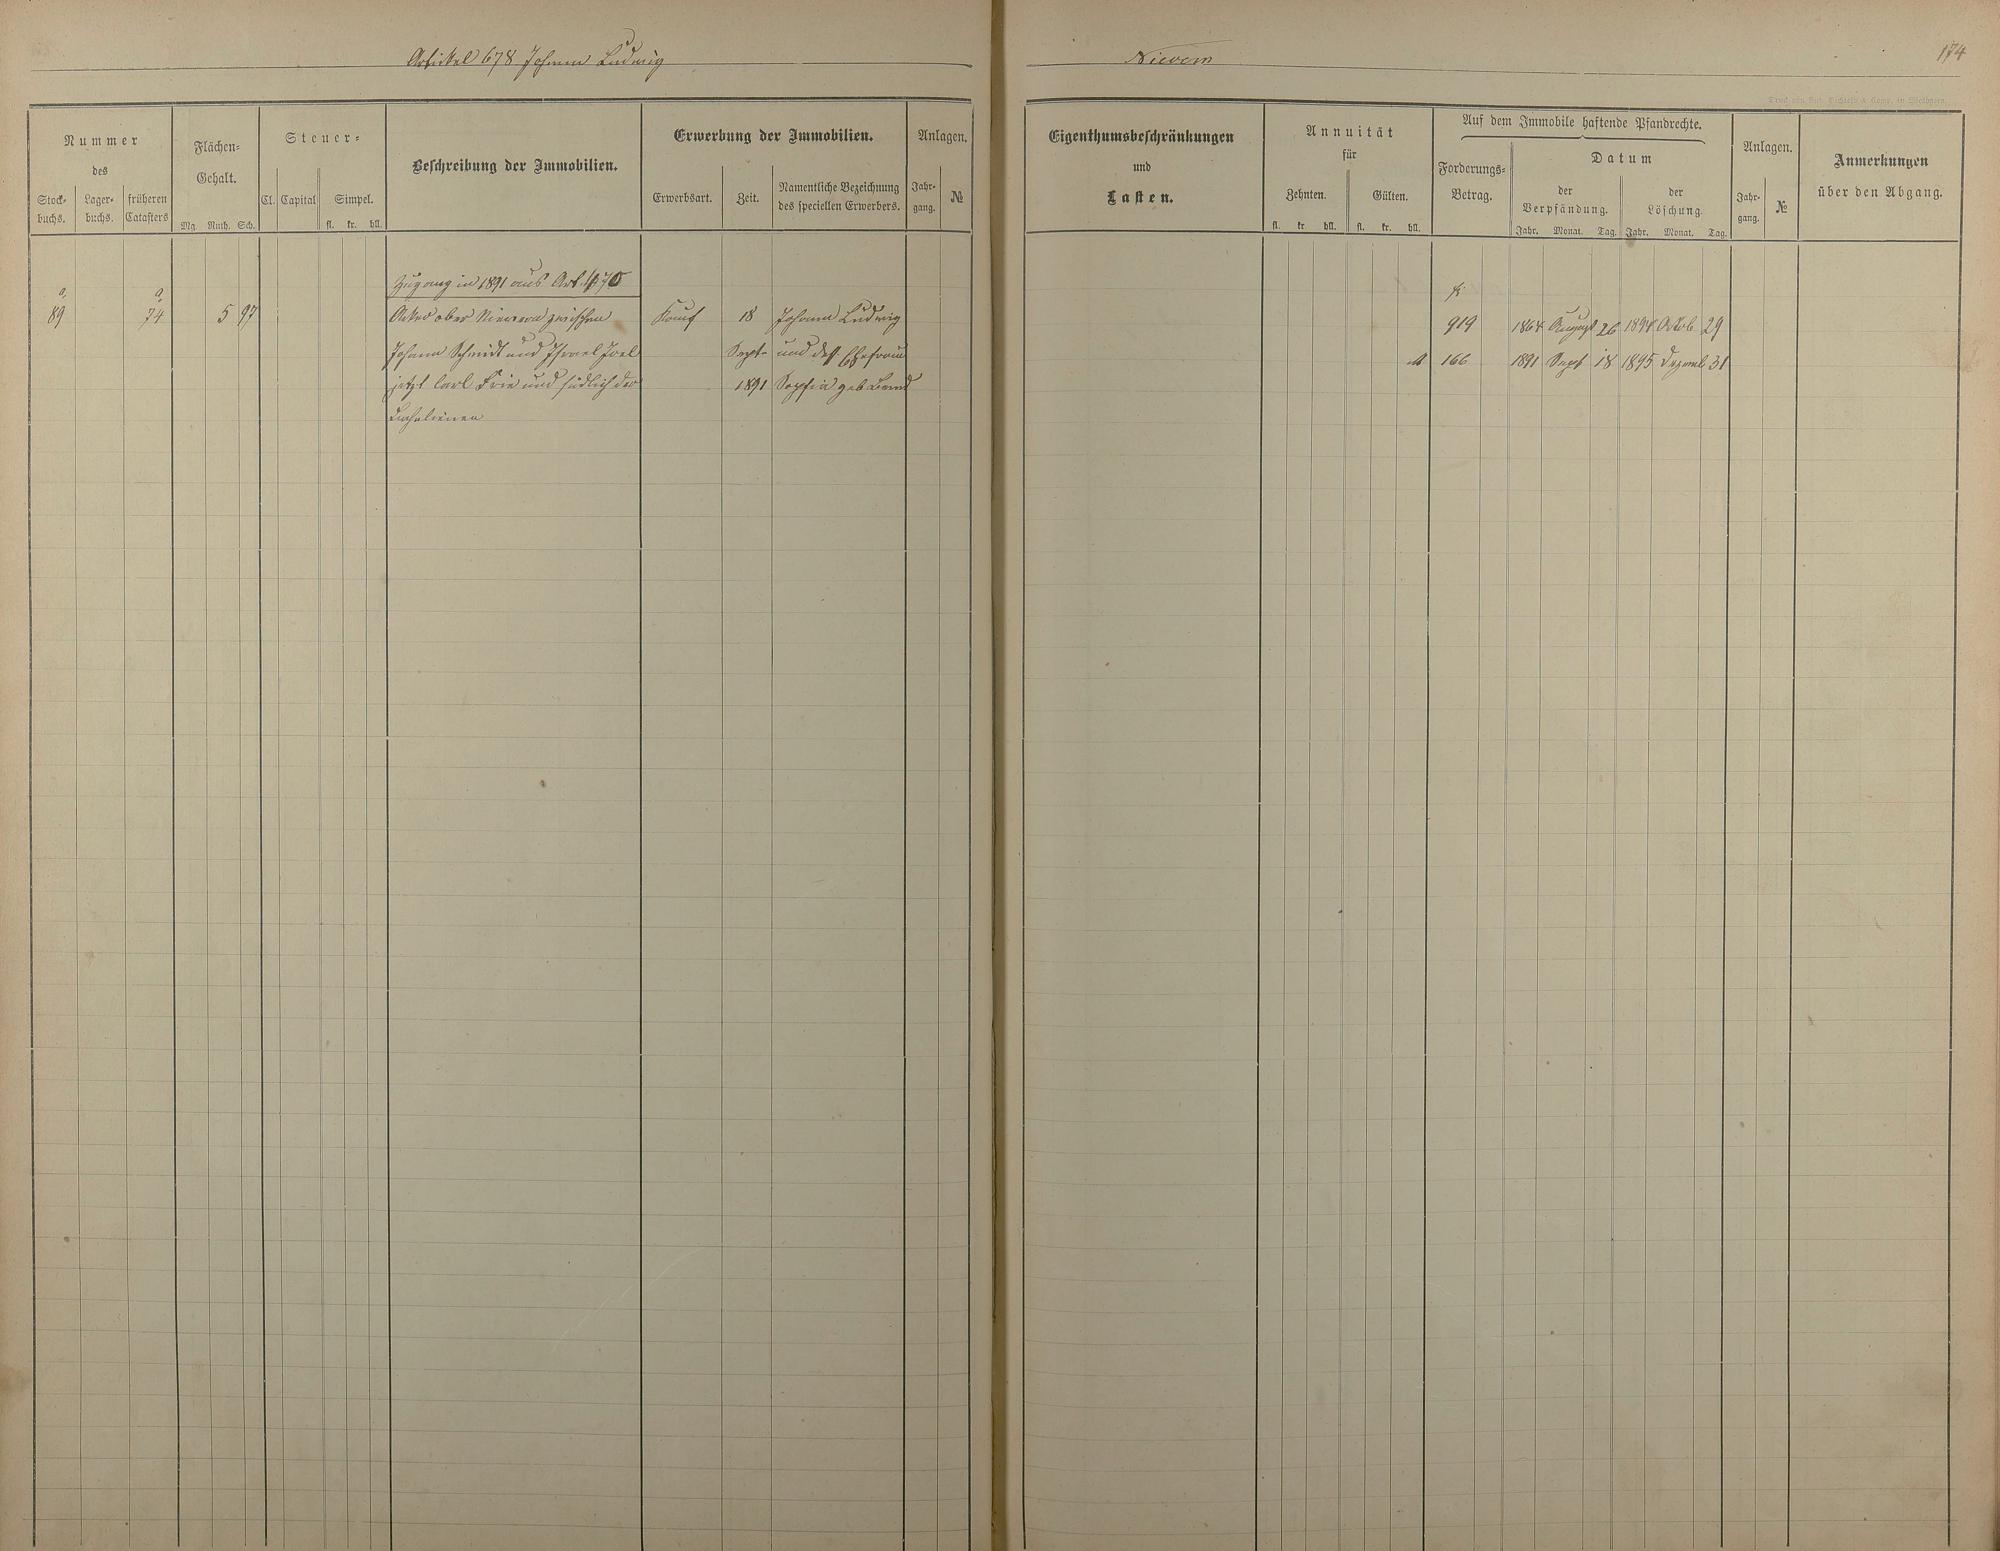 Artikel 678 Johann Ludwig
Nievern
174
Nummer
des
Stock-
buchs.
Lager-
buchs.
früheren
Catasters
Flächen-
Gehalt.
Mg. Ruth. Sch.
Steuer-
Cl. Capital Simpel.
fl. kr. hll.
Beschreibung der Immobilien.
Erwerbung der Immobilien.
Erwerbsart. Zeit.
Namentliche Bezeichnung
des speciellen Erwerbers.
Anlagen.
Jahr-
gang.
№
Eigenthumsbeschränkungen
und
Lasten.
Annuität
für
Zehnten. Gülten.
fl. kr hll. fl. kr. hll.
Auf dem Immobile haftende Pfandrechte.
Forderungs-
Betrag.
Datum
der
Verpfändung.
der
Löschung.
Jahr. Monat. Tag. Jahr. Monat. Tag.
Anlagen.
Jahr-
gang.
№
Anmerkungen
über den Abgang.
Zugang in 1891 aus Art.
a a
89 74 5 97 Acker ober Nievern zwischen Kauf 18 Johann Ludwig
919 1864 August 26 Octob 29
Johann Schmidt und Israel Joel Sept. und dess. Ehefrau
M 166 1891 Sept 18 1895 Dezemb 31
jetzt Carl und südlich der 1891 Sophia geb.